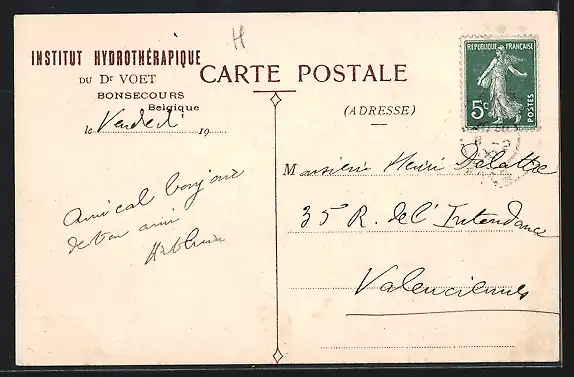 H
INSTITUT HYDROTHÉRAPIQUE
DU Dr VOET
BONSECOURS
Belgique
le Vendredi 19
Amical bonjour
de ton ami
CARTE POSTALE
(ADRESSE)
RÉPUBLIQUE FRANÇAISE
5c POSTES
Monsieur Henri Delattre
35 R. de l'Intendance
Valenciennes